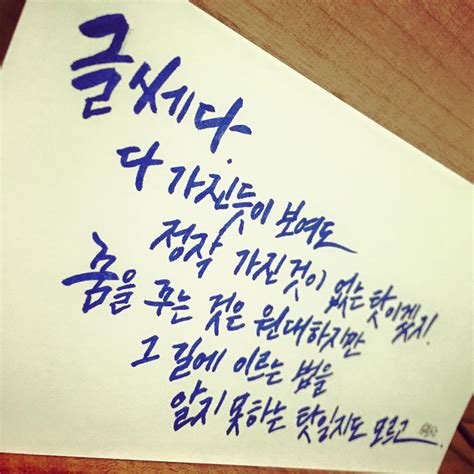 글쎄다.
다 가진듯이 보여도
정작 가진 것이 없는 탓이겠지.
꿈을 꾸는 것은 원대하지만
그 길에 이르는 법을
알지 못하는 탓일지도 모르고